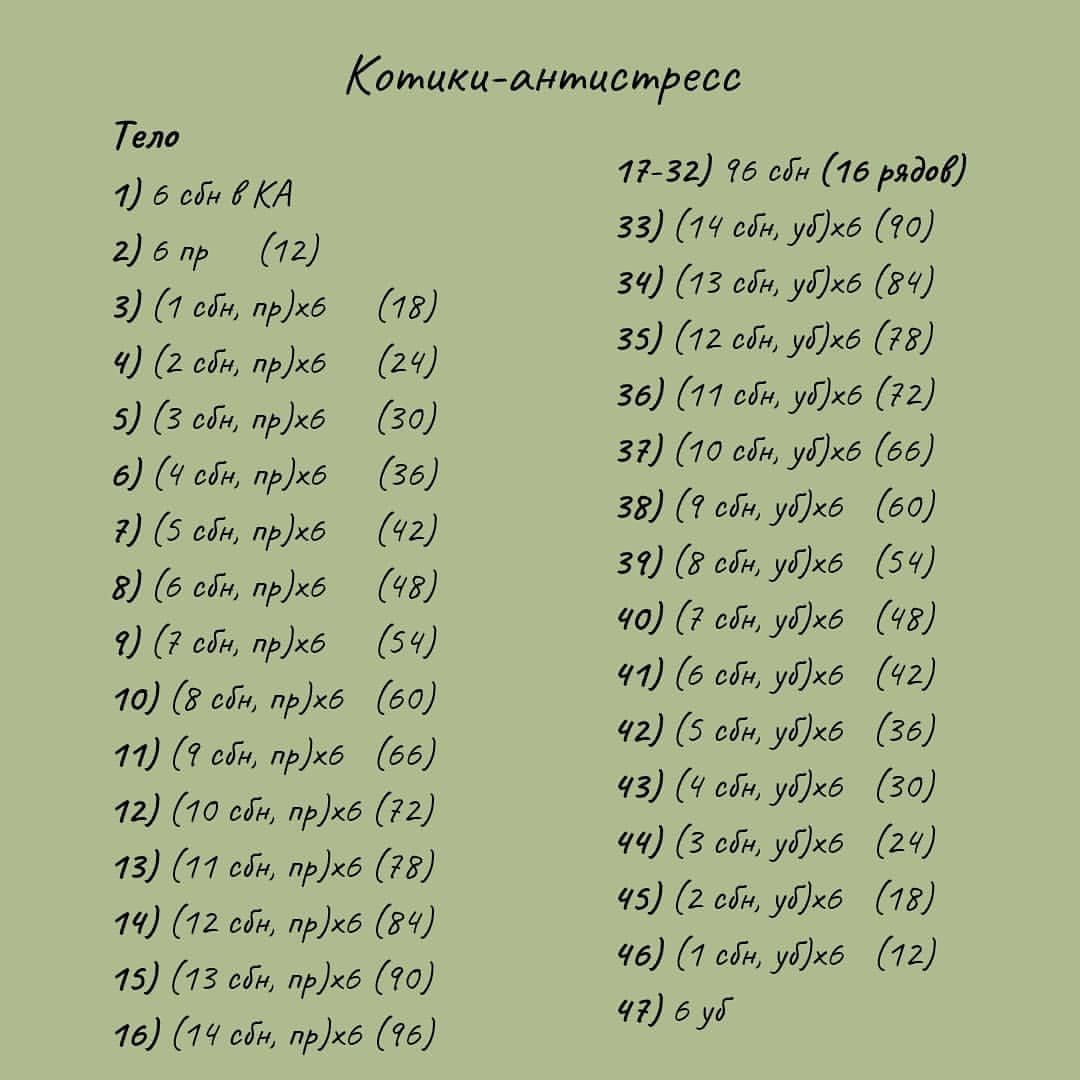 Котики-антистресс
Тело
1) 6 сбн в КА
2) 6 пр (12)
3) (1 сбн, пр)х6 (18)
4) (2 сбн, пр)х6 (24)
5) (3 сбн, пр)х6 (30)
6) (4 сбн, пр)х6 (36)
7) (5 сбн, пр)х6 (42)
8) (6 сбн, пр)х6 (48)
9) (7 сбн, пр)х6 (54)
10) (8 сбн, пр)х6 (60)
11) (9 сбн, пр)х6 (66)
12) (10 сбн, пр)х6 (72)
13) (11 сбн, пр)х6 (78)
14) (12 сбн, пр)х6 (84)
15) (13 сбн, пр)х6 (90)
16) (14 сбн, пр)х6 (96)
17-32) 96 сбн (16 рядов)
33) (14 сбн, уб)х6 (90)
34) (13 сбн, уб)х6 (84)
35) (12 сбн, уб)х6 (78)
36) (11 сбн, уб)х6 (72)
37) (10 сбн, уб)х6 (66)
38) (9 сбн, уб)х6 (60)
39) (8 сбн, уб)х6 (54)
40) (7 сбн, уб)х6 (48)
41) (6 сбн, уб)х6 (42)
42) (5 сбн, уб)х6 (36)
43) (4 сбн, уб)х6 (30)
44) (3 сбн, уб)х6 (24)
45) (2 сбн, уб)х6 (18)
46) (1 сбн, уб)х6 (12)
47) 6 уб